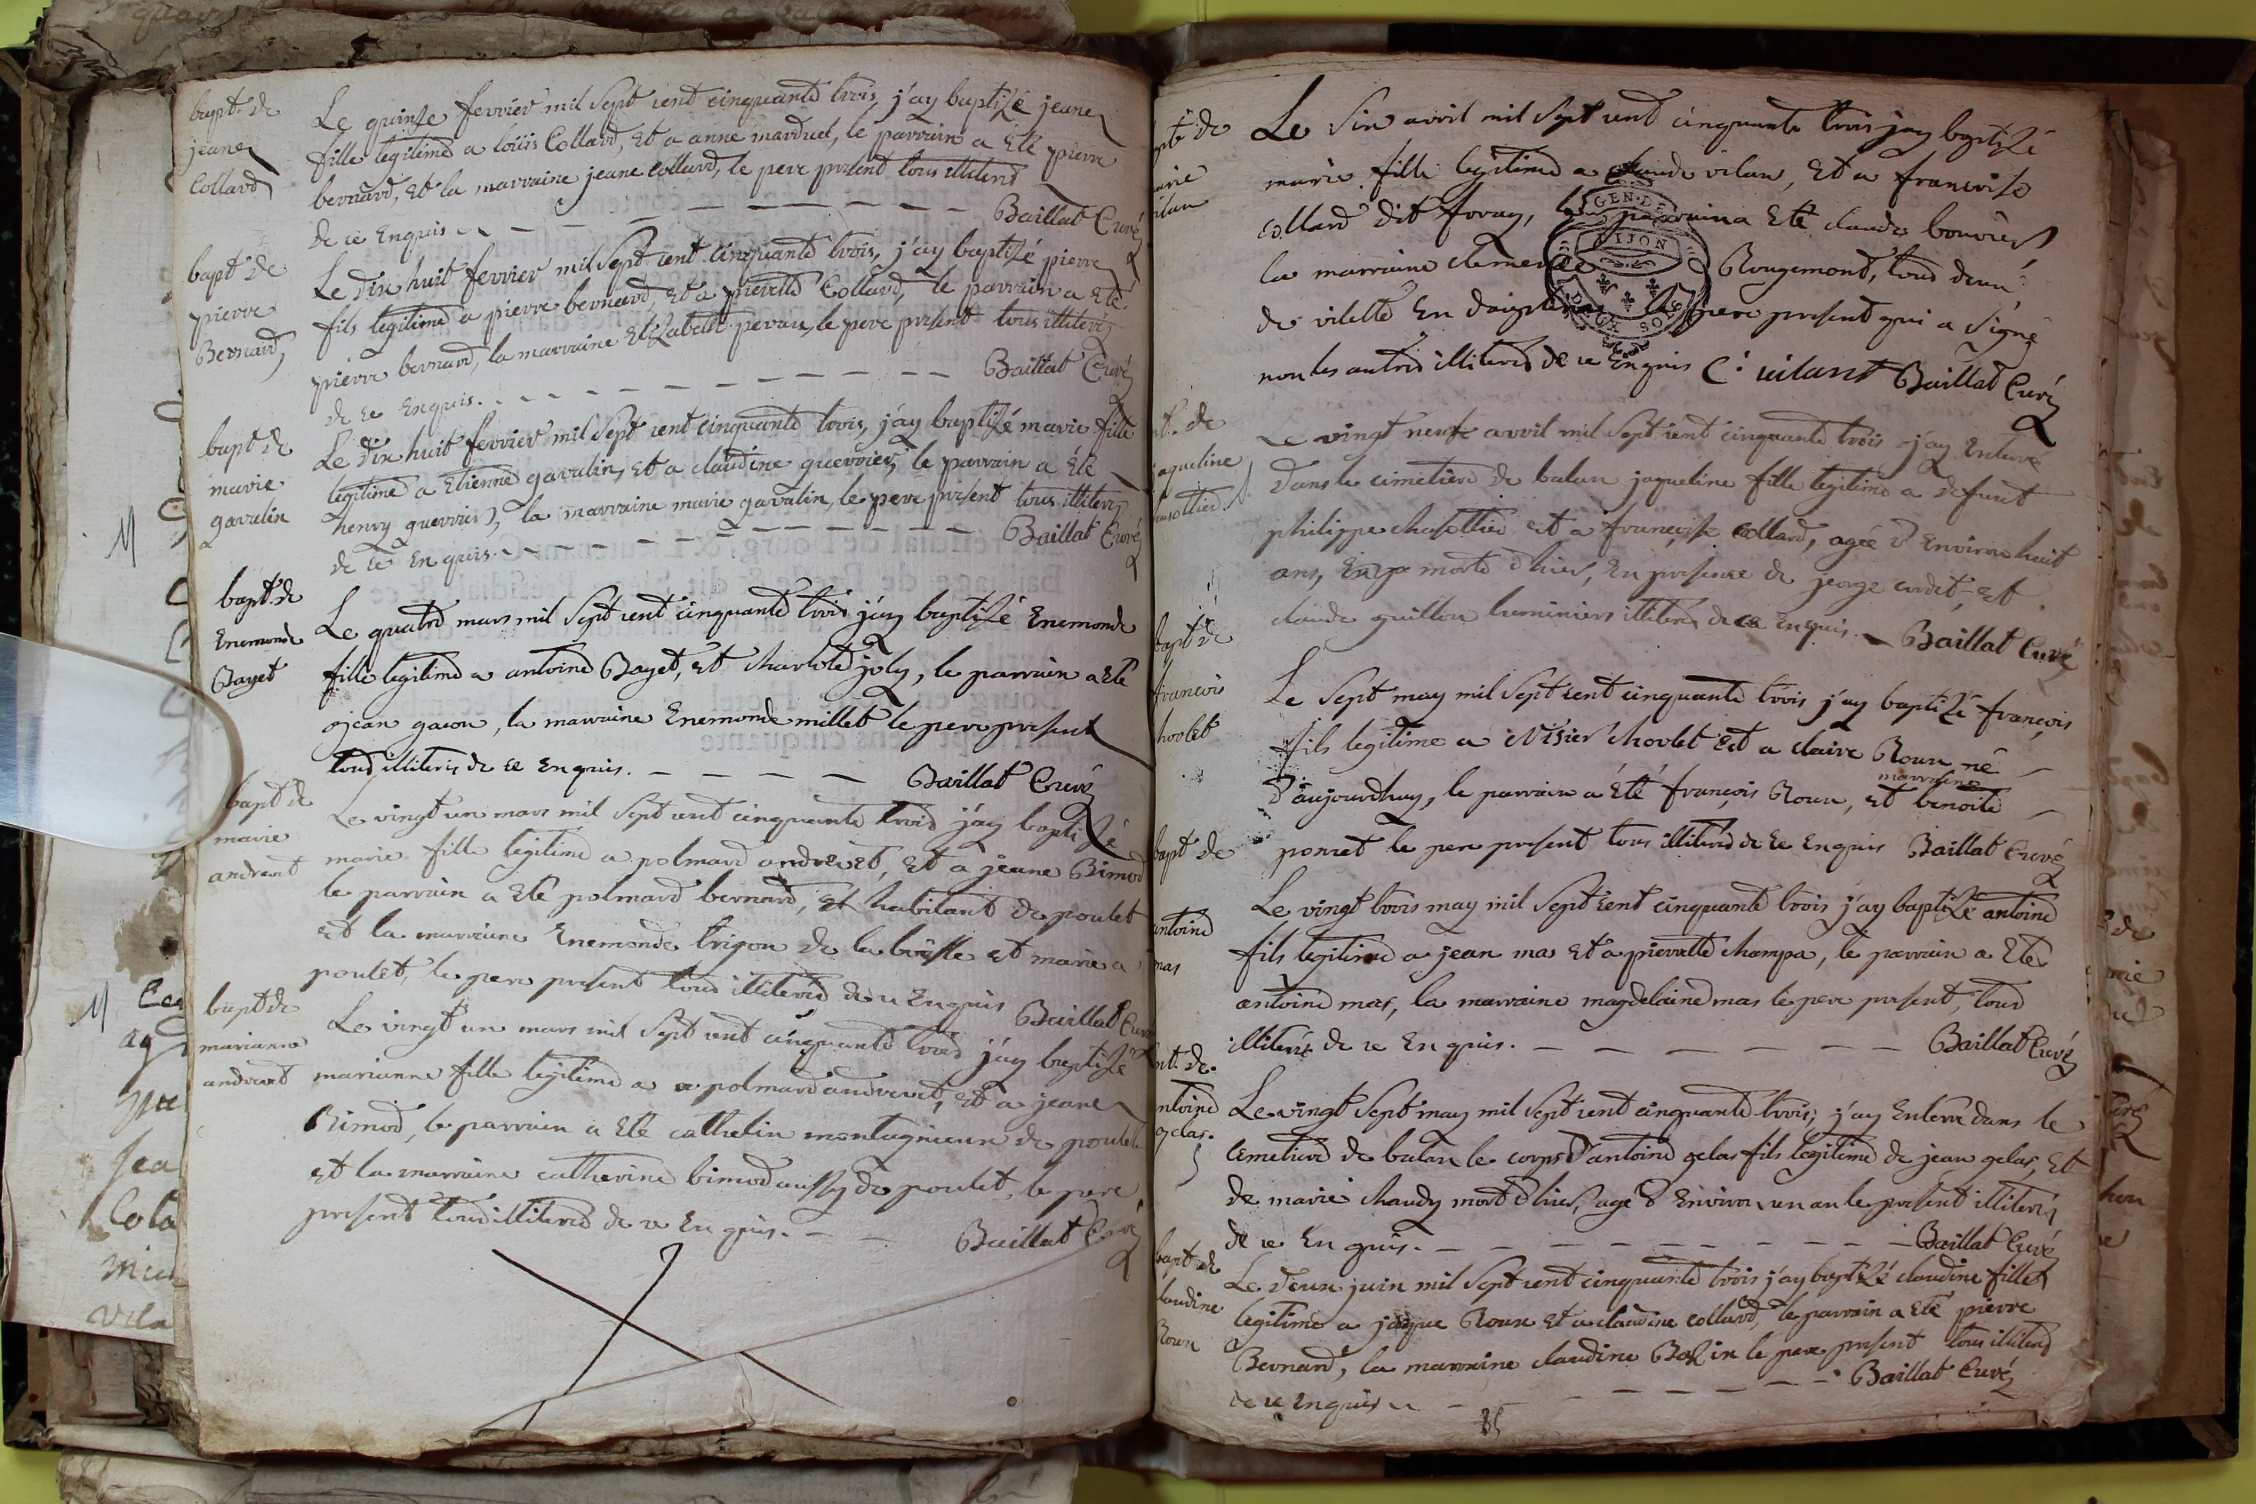 bapt. de
jeane
Collard
Le quinze fevrier mil sept cent cinquante trois, j'ay baptizé jeane
fille legitime a loüis Collard, et a anne marduel, le parrain a eté pierre
bernard, et la marraine jeane Collard, le pere present tous illiteres
de ce enquis Baillat Curé
bapt de
pierre
Bernard
Le dix huit fevrier mil sept cent cinquante trois, j'ay baptizé pierre
fils legitime a pierre bernard et a pierrette Collard, le parrain a eté
pierre bernard, la marraine Elizabeth, le pere present tous illiteres
de ce enquis. Baillat Curé
bapt de
marie
gavalin
Le dix huit fevrier mil sept cent cinquante trois, j'ay baptizé marie fille
legitime a Etienne gavalin, et a claudine guerrier, le parrain a eté
henry guerrier, la marraine marie gavalin, le pere present tous illiteres
de ce enquis. Baillat Curé
bapt. de
Enemonde
Bayet
Le quatre mars mil sept cent cinquante trois j'ay baptizé Enemonde
fille legitime a antoine Bayet, et charlote joly, le parrain a eté
jean gacon, la marraine Enemonde millet le pere present
tous illiteris de ce enquis. Baillat Curé
bapt de
marie
andrevet
Le vingt un mars mil sept cent cinquante trois j'ay baptizé
marie fille legitime a polmard andrevet, et a jeane Bimod
le parrain a eté polmard bernard, et habitant de poulet
et la marraine Enemonde trigon de la boisse et marié a
poulet, le pere present tous illiteres de ce enquis Baillat Curé
bapt de
marianne
andrevet
Le vingt un mars mil sept cent cinquante trois j'ay baptizé
marianne fille legitime a polmard andrevet, et a jeane
Bimod, le parrain a eté cathelin montagnieux de poulet
et la marraine catherine bimod aussy de poulet, le pere
present tous illiteres de ce enquis. Baillat Curé
Le six avril mil sept cent cinquante trois j'ay baptizé
marie fille legitime a claude vilan, et a francoise
collard dit foray, le parrain a eté claude bouvier
la marraine clemence Rougemont, tous deux
de vilette en le pere present qui a signé
non les autres illiteres de ce enquis C. vilant Baillat Curé
GEN. DE
DIJON
DEUX SOLS
pt. de
jaqueline
Le vingt neuf avril mil sept cent cinquante trois j'ay enterré
dans le cimetiere de balan jaqueline fille legitime a defunt
philippe et a françoise collard, agée d environ huit
ans, morte d hier, en presence de george cadet, et
claude guillon luminiers illiteres de ce enquis. Baillat Curé
bapt de
francois
chorlet
Le sept may mil sept cent cinquante trois j'ay baptizé françois
fils legitime a nisier chorlet et a claire Roux né
d'aujourdhuy, le parrain a été françois Roux, et marraine benoite
poncet le pere present tous illiteres de ce enquis Baillat Curé
bapt de
antoine
mas
Le vingt trois may mil sept cent cinquante trois j'ay baptizé antoine
fils legitime a jean mas et a pierrette champa, le parrain a eté
antoine mas, la marraine magdelaine mas le pere present, tous
illiterés de ce enquis. Baillat Curé
pt. de
antoine
gelas.
Le vingt sept may mil sept cent cinquante trois, j'ay enterré dans le
cemetiere de balan le corps d'antoine gelas fils legitime de jean gelas, et
de marie chaudy mort d hier, age d environ un an le present illiteré
de ce enquis. Baillat Curé
bapt de
claudine
Roux
Le deux juin mil sept cent cinquante trois j'ay baptizé claudine fille
legitime a jaque Roux et a claudine collard, le parrain a eté pierre
Bernard, la marraine claudine Bozin le pere present tous illiteres
de ce enquis Baillat Curé